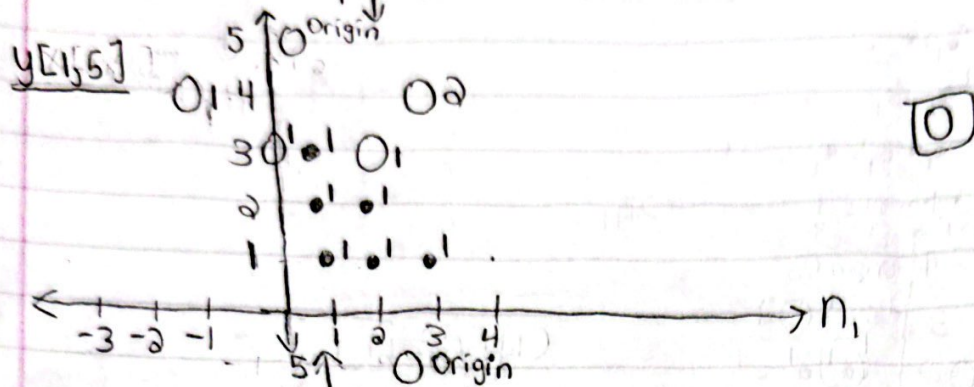 5 Origin
y[1,5]
1 4 2
3 1 1 1 0
2 1 1
1 1 1 1
-3 -2 -1 1 2 3 4 n₁
5 Origin